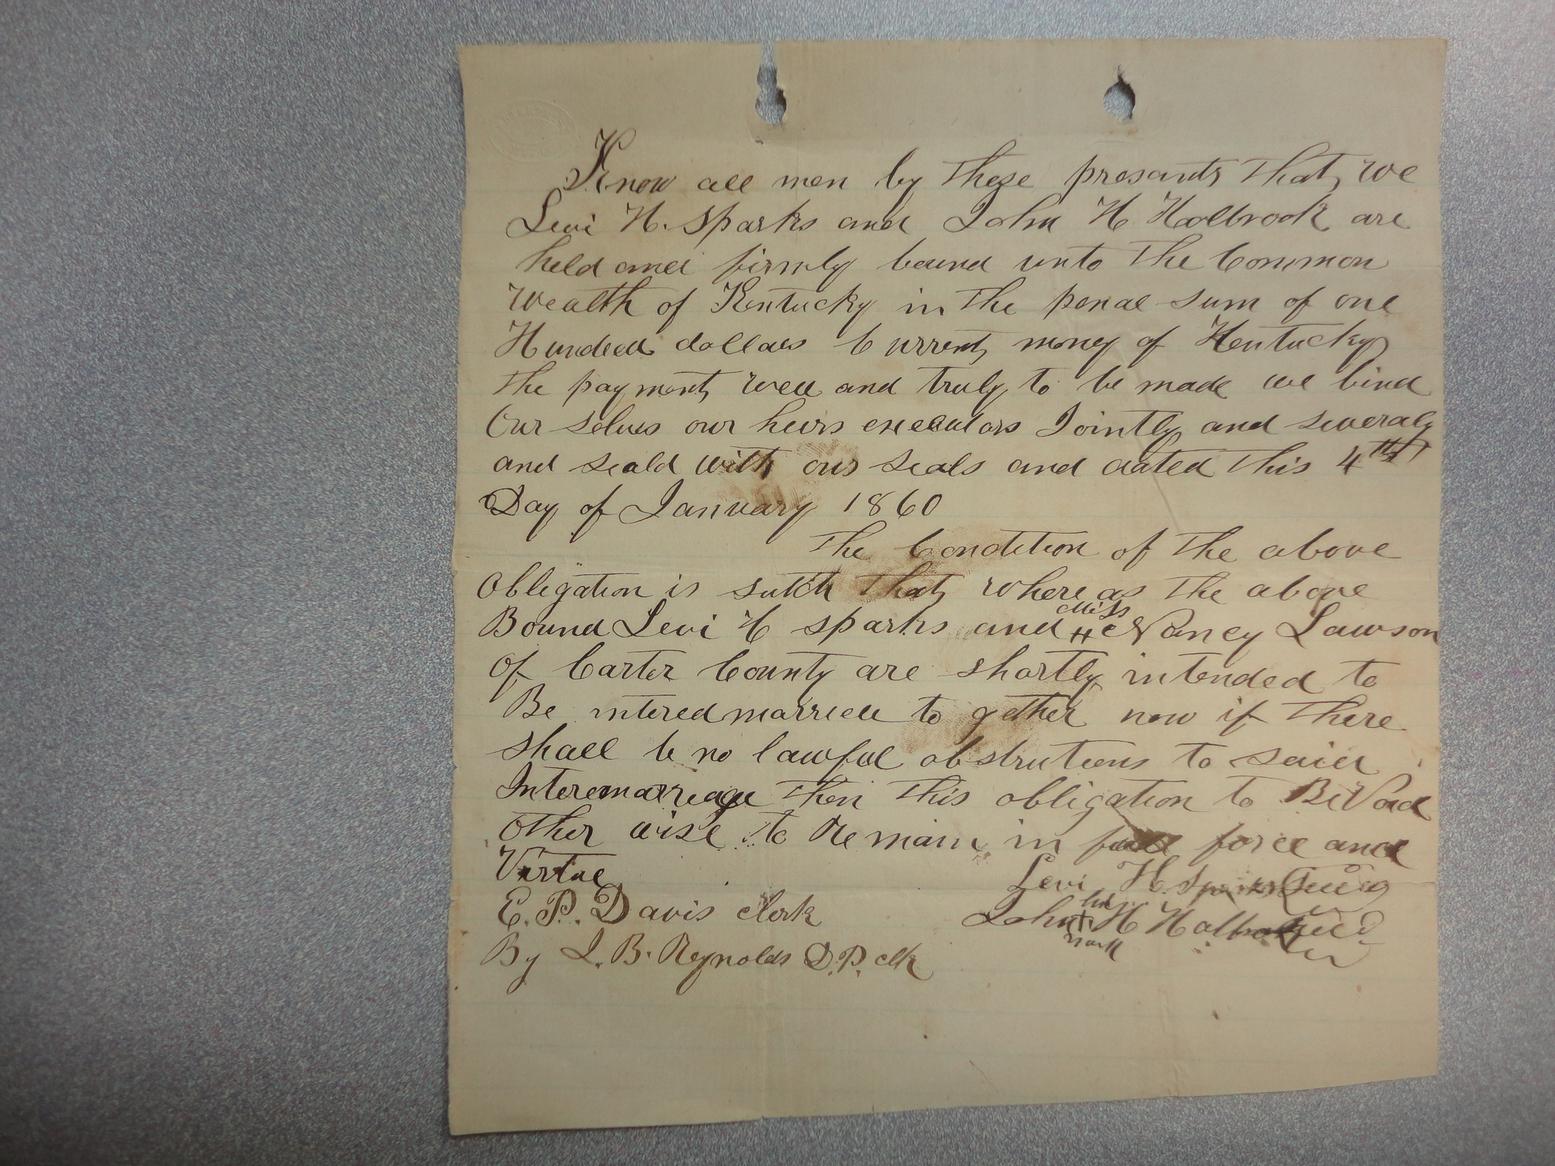 Know all men by these presants that we
Levi H. Sparks and John H Holbrook are
held and firmly bound unto the Common
Wealth of Kentucky in the penal sum of one
Hundred dollars Current money of Kentucky
the payment well and truly to be made we bind
Our selves our heirs executors Jointly and severaly
and seald with our seals and dated this 4th
Day of January 1860
The Condition of the above
Obligation is sutch that where as the above
Bound Levi H Sparks and Miss Nancy Lawson
Of Carter County are shortly intended to
Be intered married to gether now if there
shall be no lawful obstrutions to said
Interemarreage then this obligation to Be Void
other wise to Remain in full force and
Virtue
Levi H. Sparks Seal
E. P. Davis clerk
John his X mark H Holbrook Seal
By J. B. Reynolds D.P. clk